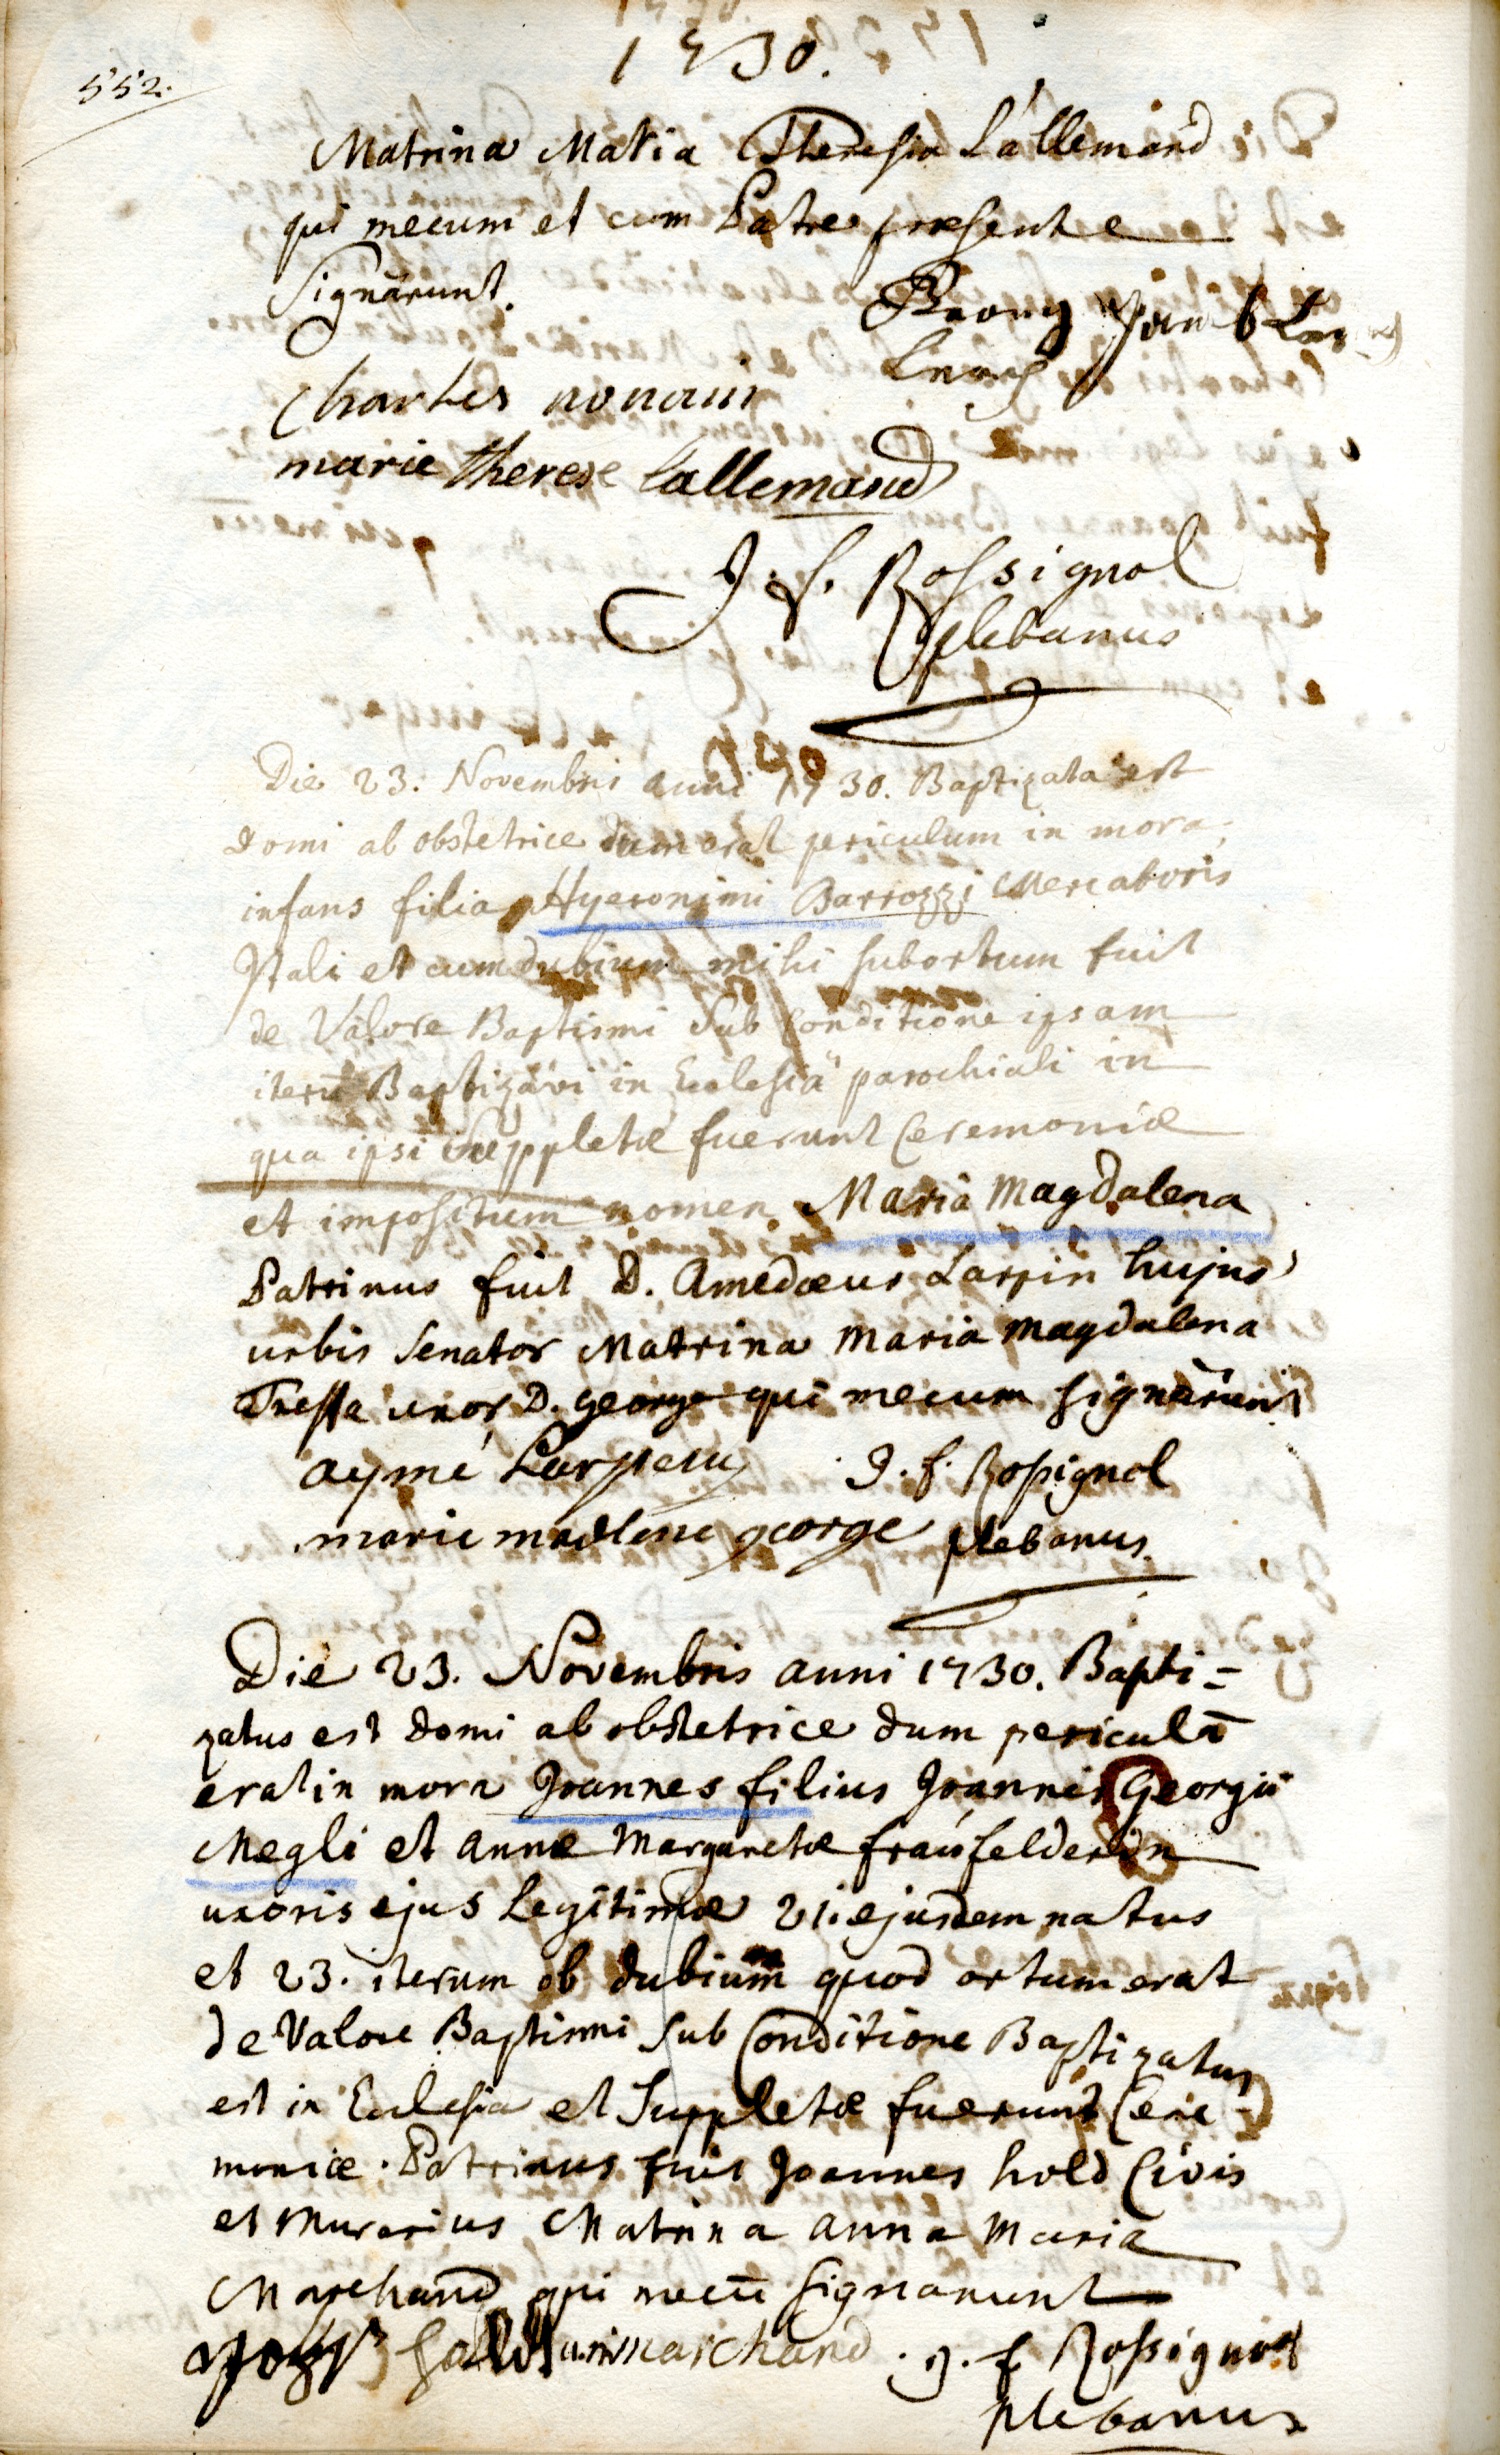 552.
1730.
Matrina Maria Theresia Lallemand
qui mecum et cum Patre præsente
signarunt.
Charles nonain
marie therese lallemand
J. f. Rossignol
plebanus
Die 23. Novembris anni 1730. Baptizata est
domi ab obstetrice dum erat periculum in mora,
infans filia Hyeronimi Barrozzi Mercatoris
Itali et cum dubium mihi subortum fuit
de Valore Baptismi sub Conditione ipsam
iterū Baptizavi in Ecclesiâ parochiali in
qua ipsi suppletæ fuerunt Ceremoniæ
et impositum nomen Maria Magdalena
Patrinus fuit D. Amedæus Larpin hujus
urbis senator Matrina Maria Magdalena
uxor D. george qui mecum signārunt
aymé Larpein
J. f. Rossignol
marie madlene george
plebanus.
Die 23. Novembris anni 1730. Bapti=
zatus est domi ab obstetrice dum periculū
erat in mora Joannes filius Joannis Georgii
Megli et annæ Margarethæ fraüfelderin
uxoris ejus Legitimæ 21. ejusdem natus
et 23. iterum ob dubium quod ortum erat
de Valore Baptismi sub Conditione Baptizatus
est in Ecclesia et suppletæ fuerunt Cere=
moniæ. Patrinus fuit Joannes hold Civis
et murarius Matrina anna Maria
Marchand qui mecū signarunt
marchand
J. f. Rossignol
plebanus